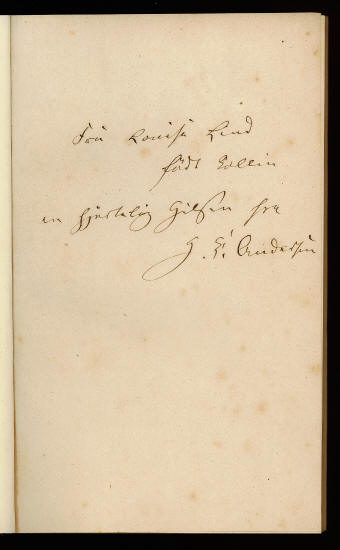 Fru Louise Lind
født Collin
en hjertelig Hilsen fra
H. C. Andersen